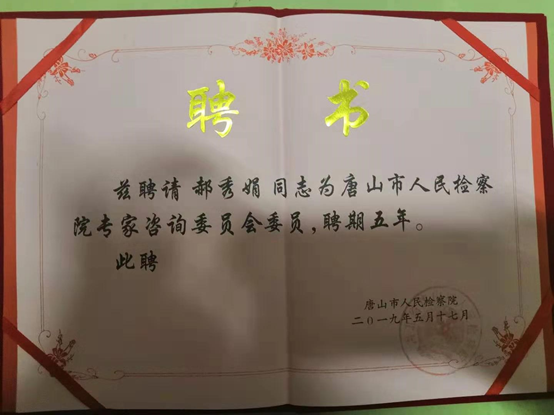 聘书
兹聘请 郝秀娟 同志为唐山市人民检察
院专家咨询委员会委员，聘期五年。
此聘
唐山市人民检察院
二〇一九年五月十七月